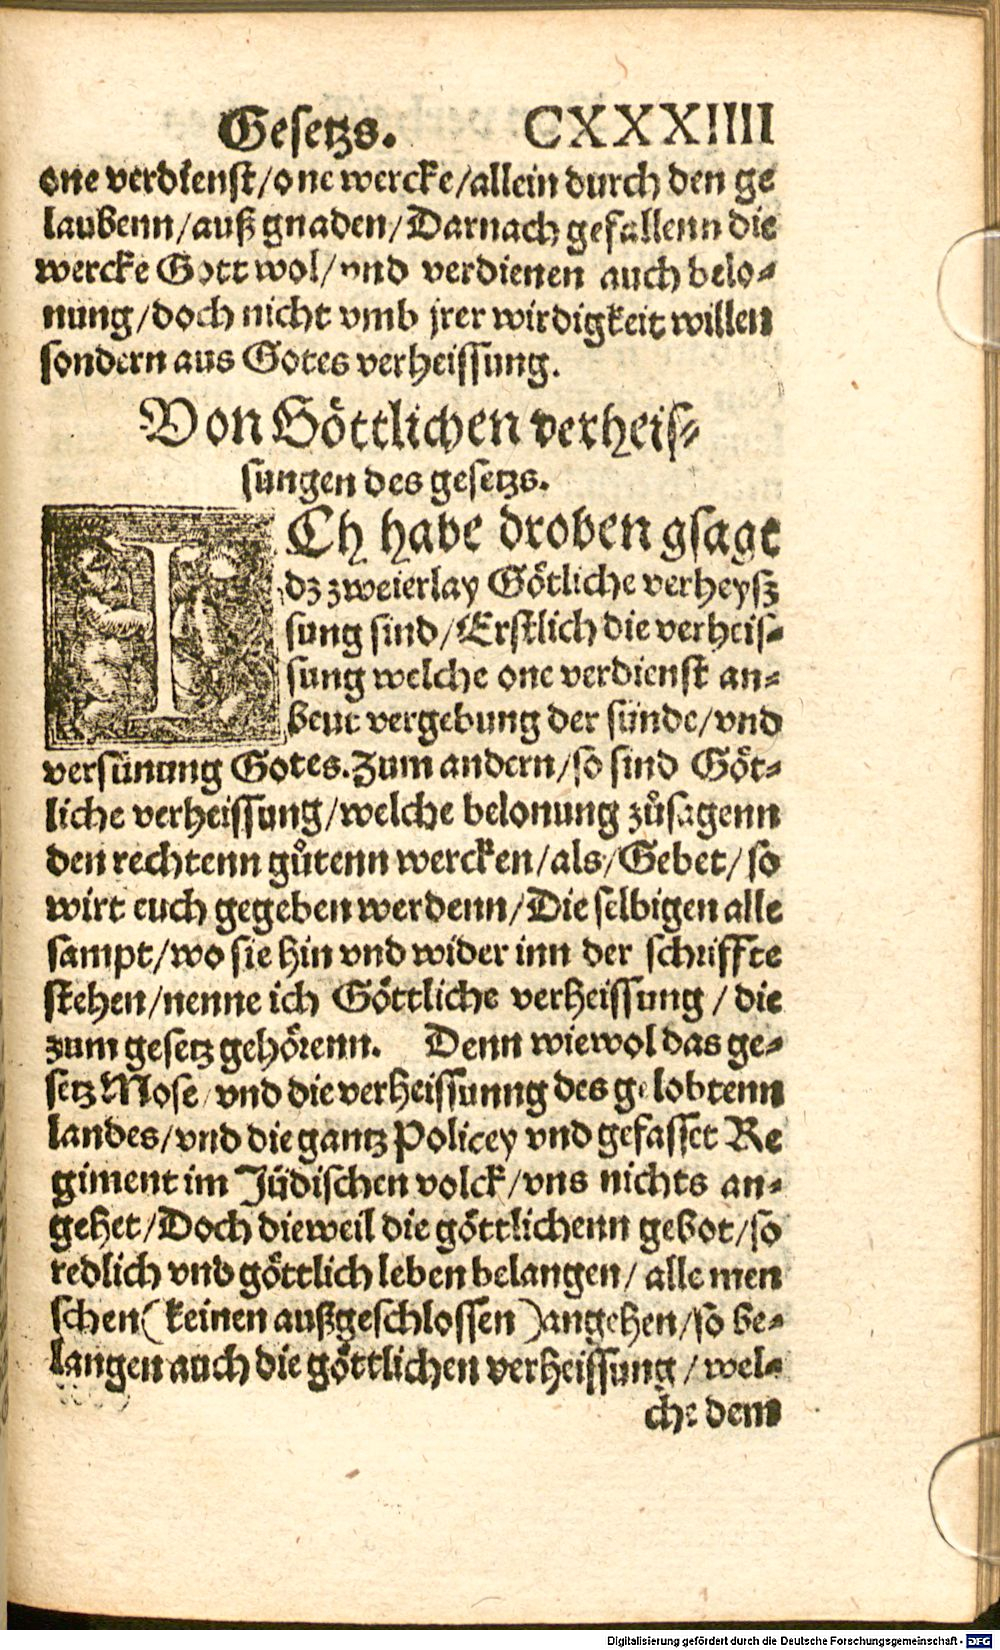 Gesetzs. CXXXIIII
one verdienst/one wercke/allein durch den ge
laubenn/auß gnaden/Darnach gefallenn die
wercke Gott wol/vnd verdienen auch belo-
nung/doch nicht vmb jrer wirdigkeit willen
sondern aus Gotes verheissung.
Von Göttlichen verheis-
sungen des gesetzs.
ICh habe droben gsagt
dz zweierlay Götliche verheysz
sung sind/Erstlich die verheis-
sung welche one verdienst an-
beut vergebung der sünde/vnd
versünung Gotes. Zum andern/so sind Göt-
liche verheissung/welche belonung zůsagenn
den rechtenn gůtenn wercken/als/Gebet/so
wirt euch gegeben werdenn/Die selbigen alle
sampt/wo sie hin vnd wider inn der schrifte
stehen/nenne ich Göttliche verheissung/die
zum gesetz gehörenn. Denn wiewol das ge-
setz Mose/vnd die verheissunng des gelobtenn
landes/vnd die gantz Policey vnd gefasset Re
giment im Jüdischen volck/vns nichts an-
gehet/Doch dieweil die göttlichenn gebot/so
redlich vnd göttlich leben belangen/alle men
schen(keinen außgeschlossen)angehen/so be-
langen auch die göttlichen verheissung/wel-
che dem
Digitalisierung gefördert durch die Deutsche Forschungsgemeinschaft - DFG